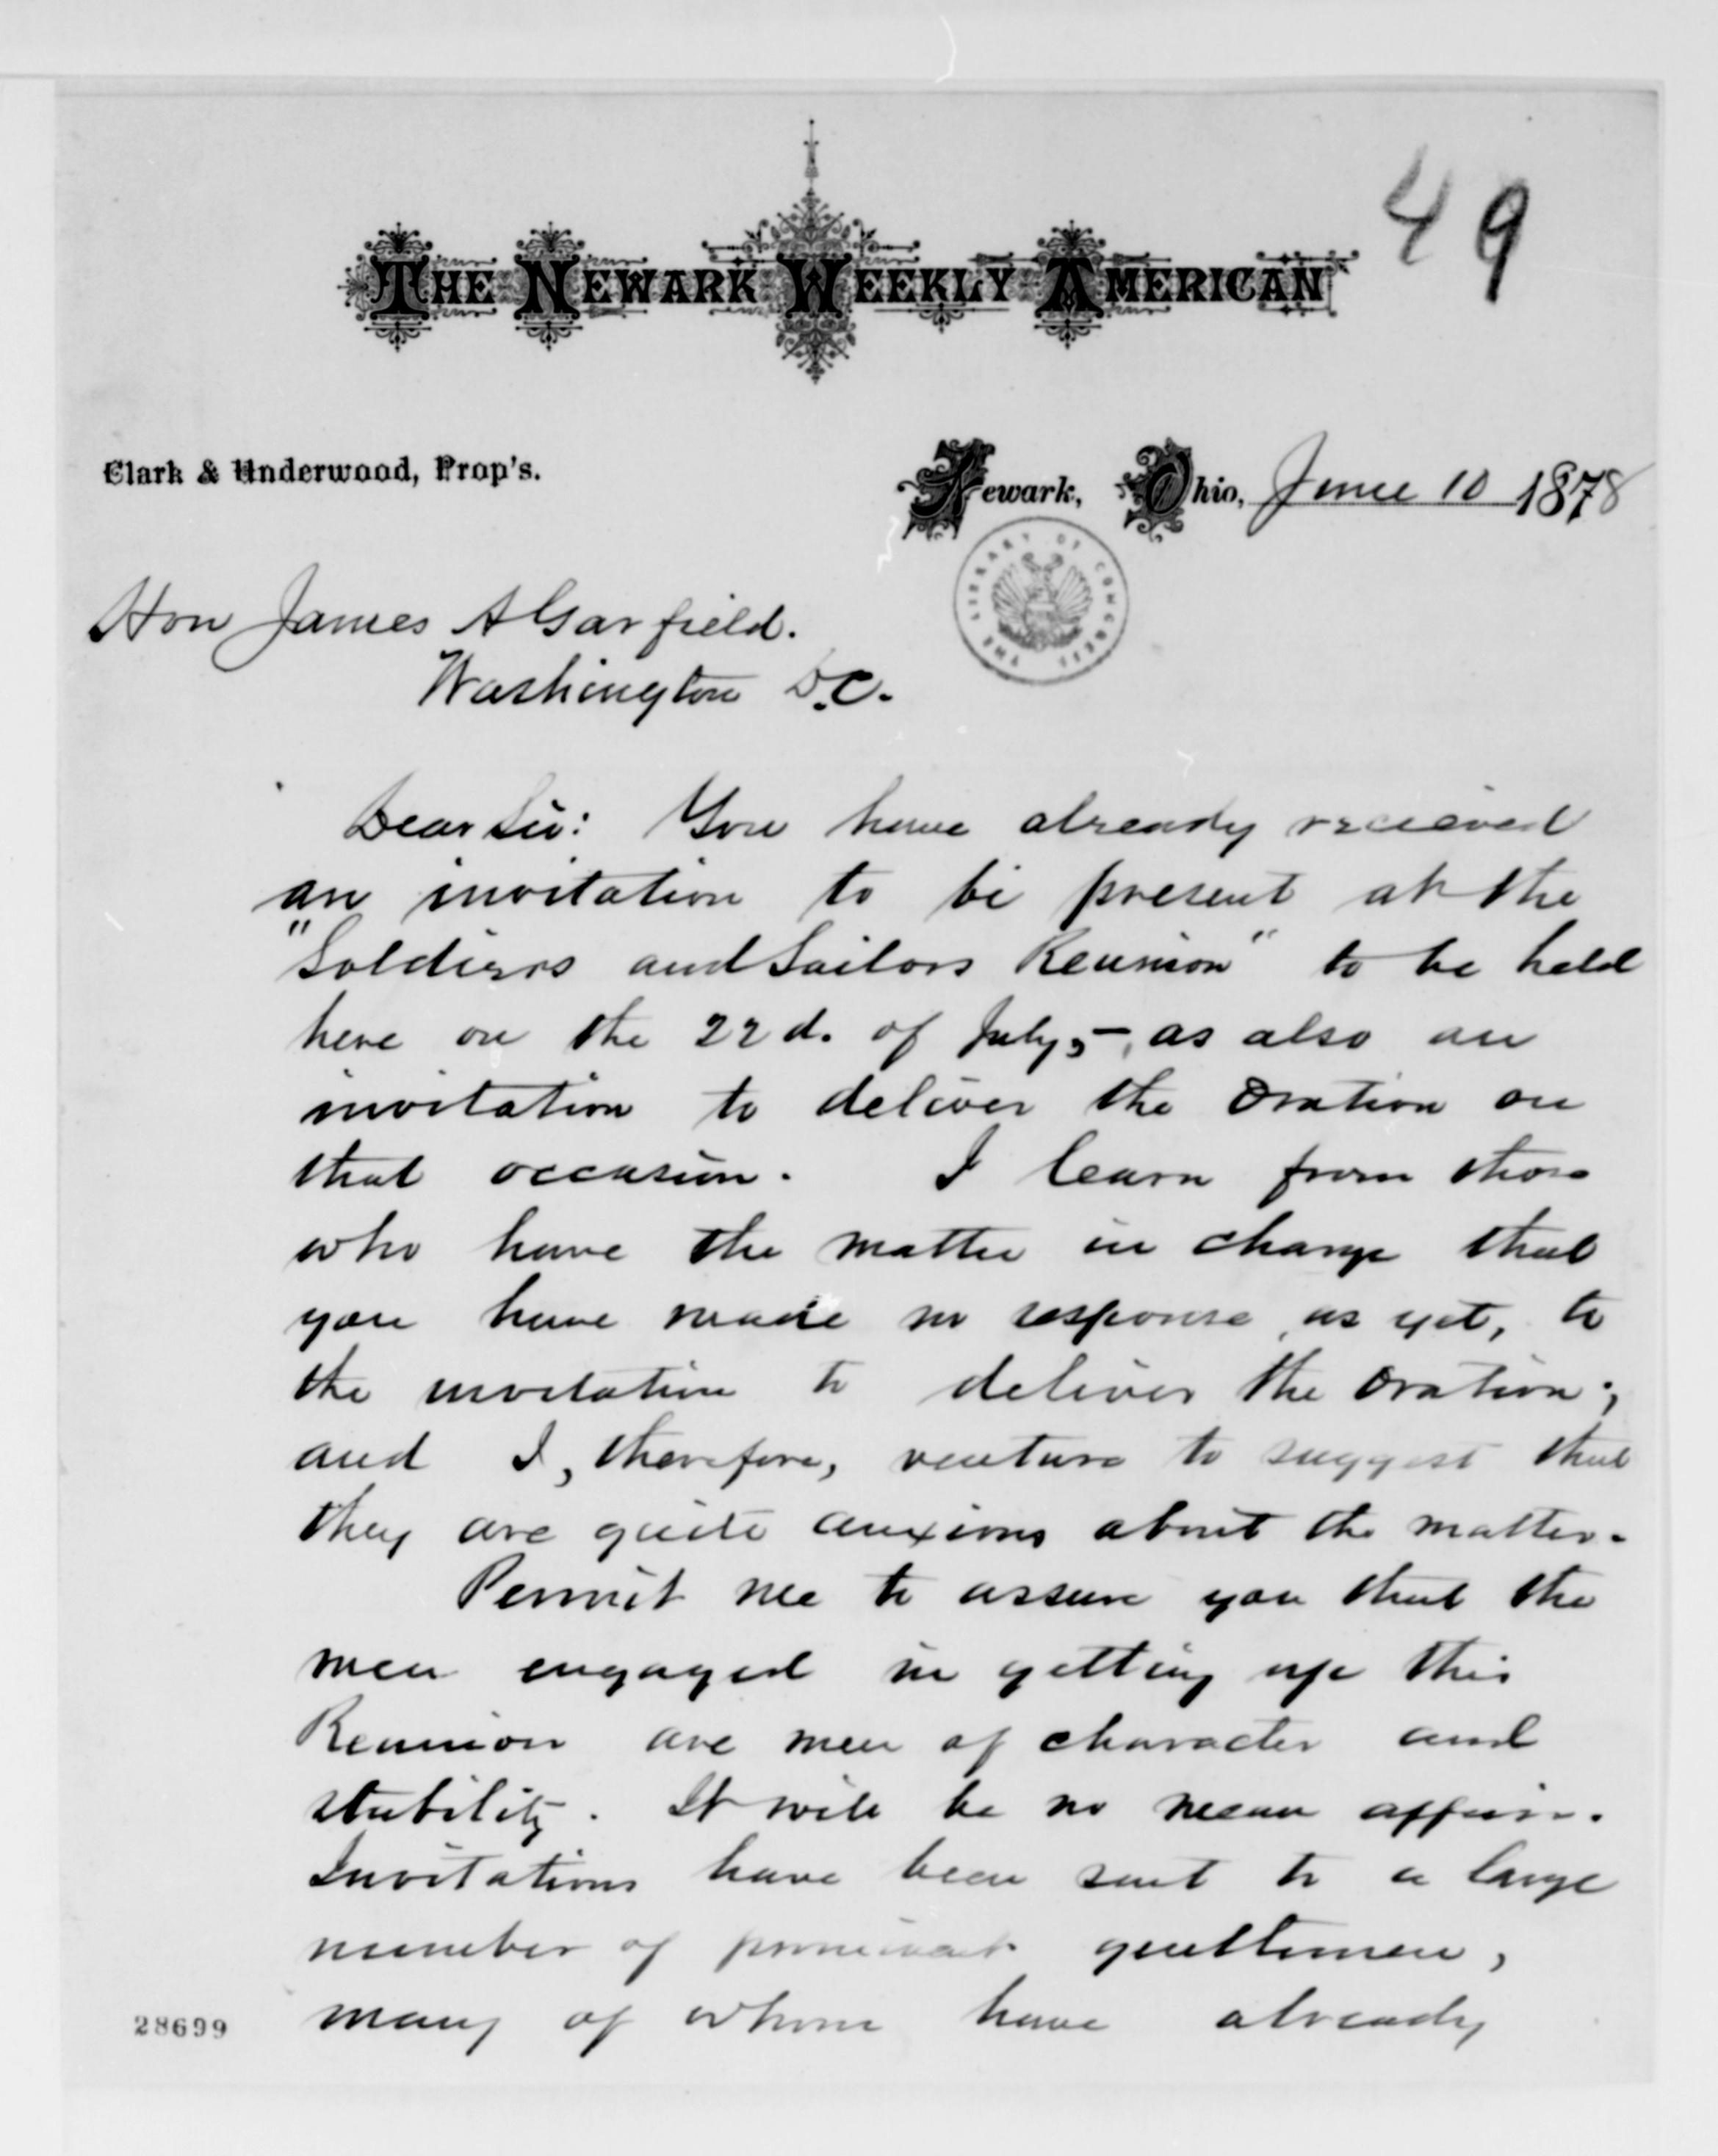 49
THE NEWARK WEEKLY AMERICAN
Clark & Underwood, Prop's.
Newark, Ohio, June 10 1878
THE LIBRARY OF CONGRESS
Hon James A Garfield.
Washington D.C.
Dear Sir: You have already recieved
an invitation to be present at the
"Soldiers and Sailors Reunion" to be held
here on the 22d. of July, — as also an
invitation to deliver the Oration on
that occasion. I learn from those
who have the matter in charge that
you have made no response, as yet, to
the invitation to deliver the Oration;
and I, therefore, venture to suggest that
they are quite anxious about the matter.
Permit me to assure you that the
men engaged in getting up this
Reunion are men of character and
stability. It will be no mean affair.
Invitations have been sent to a large
number of prominent gentlemen,
many of whom have already
28699